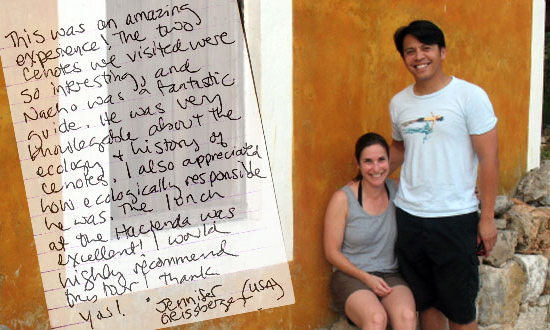 This was an amazing
experience! The two
cenotes we visited were
so interesting, and
Nacho was a fantastic
guide. He was very
knowlegable about the
ecology + history of
cenotes. I also appreciated
how ecologically responsible
he was. The lunch
at the Hacienda was
excellent! I would
highly recommend
this tour! Thank
you!
Jennifer
Geissberger (USA)